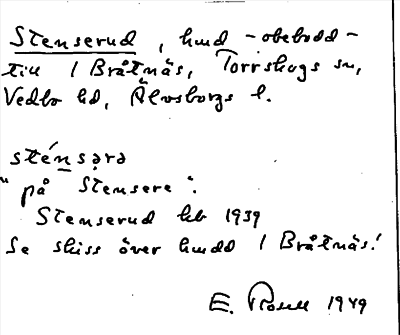 Stenserud, hmd - obebodd -
till 1 Bråtnäs, Torrskogs sn,
Vedbo hd, Älvsborgs l.
sténsərə
"på Stensere".
Stenserud hb 1939
Se skiss över hmdd 1 Bråtnäs!
E. Rosell 1949